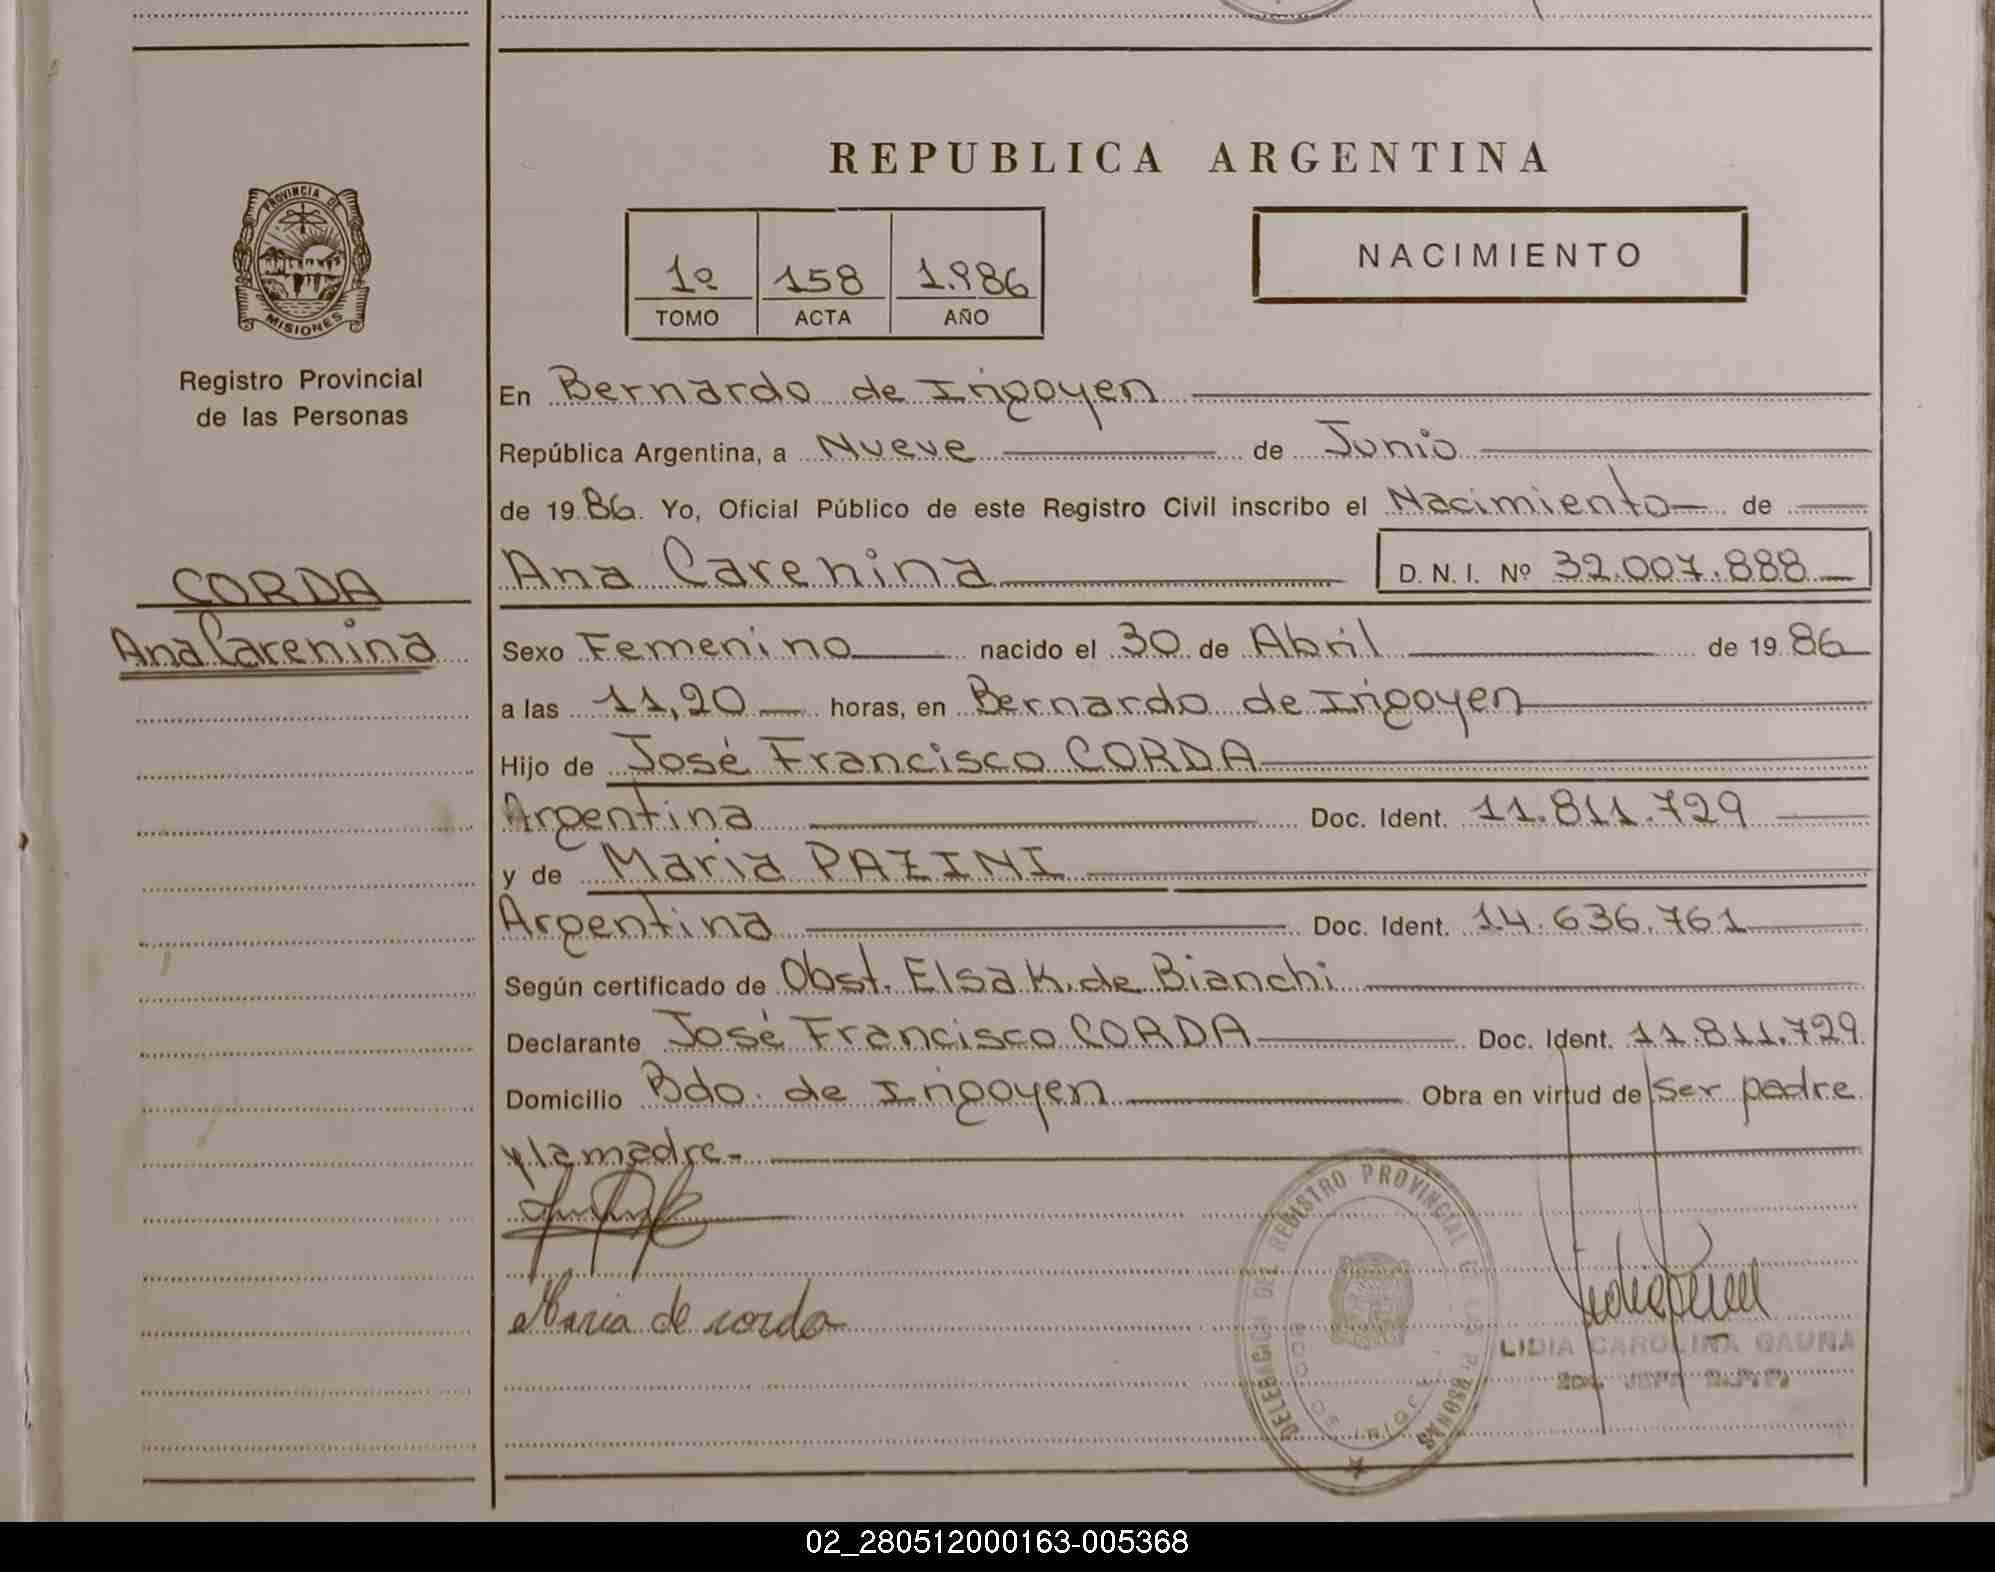 REPUBLICA ARGENTINA
PROVINCIA DE
MISIONES
Registro Provincial
de las Personas
1º 158 1.986
TOMO ACTA AÑO
NACIMIENTO
En Bernardo de Irigoyen
República Argentina, a Nueve de Junio
de 1986. Yo, Oficial Público de este Registro Civil inscribo el Nacimiento de
Ana Carenina D. N. I. Nº 32.007.888
CORDA
Ana Carenina
Sexo Femenino nacido el 30 de Abril de 1986
a las 11,20 horas, en Bernardo de Irigoyen
Hijo de José Francisco CORDA
Argentina Doc. Ident. 11.811.729
y de Maria PAZINI
Argentina Doc. Ident. 14.636.761
Según certificado de Obst. Elsa K. de Bianchi
Declarante José Francisco CORDA Doc. Ident. 11.811.729
Domicilio Bdo. de Irigoyen Obra en virtud de ser padre
y la madre.
Maria de corda
DELEGACION DEL REGISTRO PROVINCIAL DE LAS PERSONAS
BDO DE IRIGOYEN
LIDIA CAROLINA GAUNA
02_280512000163-005368